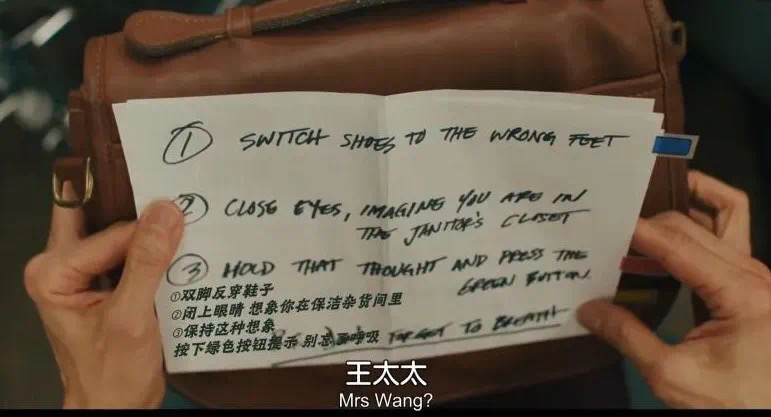 ① SWITCH SHOES TO THE WRONG FEET
② CLOSE EYES, IMAGINE YOU ARE IN
THE JANITOR'S CLOSET
③ HOLD THAT THOUGHT AND PRESS THE
GREEN BUTTON.
FORGET TO BREATH
①双脚反穿鞋子
②闭上眼睛 想象你在保洁杂货间里
③保持这种想象
按下绿色按钮提示 别忘了呼吸
王太太
Mrs Wang?